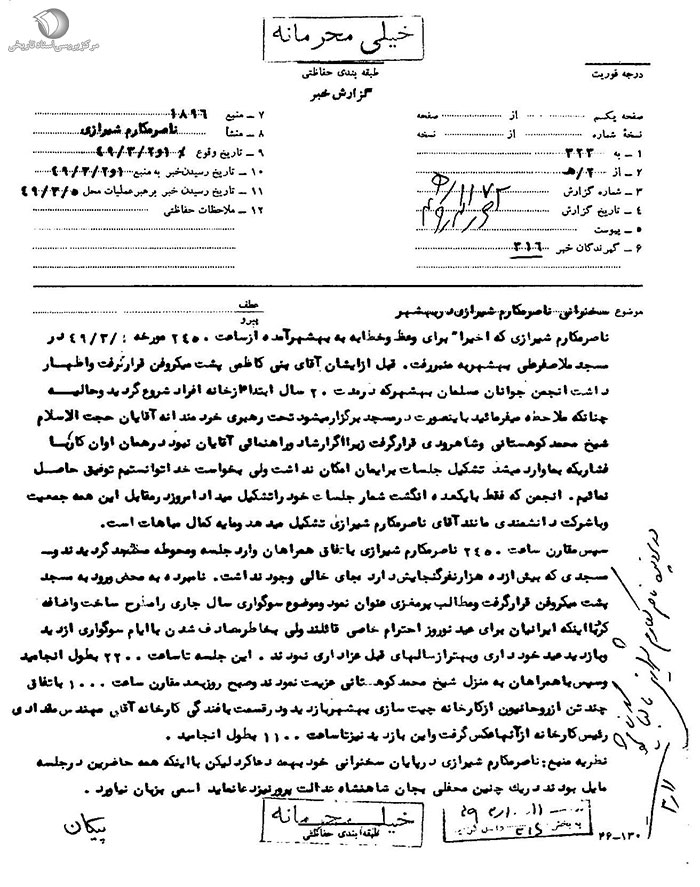 مرکز بررسی اسناد تاریخی
خیلی محرمانه
طبقه بندی حفاظتی
درجه فوریت
گزارش خبر
صفحه یکم از صفحه
نسخهٔ شماره از نسخه
۱ ـ به ۳۲۳
۲ ـ از ۲/هـ
۳ ـ شماره گزارش
۴ ـ تاریخ گزارش
۵ ـ پیوست
۶ ـ گیرندگان خبر ۳۱۶
۷ ـ منبع ۱۸۹۶
۸ ـ منشأ ناصرمکارم شیرازی
۹ ـ تاریخ وقوع ۱و۴۹/۳/۲
۱۰ ـ تاریخ رسیدن خبر به منبع ۱و۴۹/۳/۲
۱۱ ـ تاریخ رسیدن خبر برهبرعملیات محل ۴۹/۳/۵
۱۲ ـ ملاحظات حفاظتی
موضوع سخنرانی ناصرمکارم شیرازی دربهشهر
عطف
پیرو
ناصرمکارم شیرازی که اخیراً برای وعظ وخطابه به بهشهرآمده ازساعت ۲۴۵۰ مورخه ۴۹/۳/۱ در
مسجد ملاصفرعلی بهشهربه منبررفت. قبل ازایشان آقای بنی کاظمی پشت میکروفن قرارگرفت واظهار
داشت انجمن جوانان مسلمان بهشهرکه درمدت ۲۰ سال ابتدا ازخانه افراد شروع گردید وحالیه
چنانکه ملاحظه میفرمائید باینصورت درمسجد برگزارمیشود تحت رهبری خردمندانه آقایان حجت الاسلام
شیخ محمدکوهستانی وشاهرودی قرارگرفت زیرااگرارشاد وراهنمائی آقایان نبود درهمان اوان کاربا
فشاریکه بماوارد میشد تشکیل جلسات برایمان امکان نداشت ولی بخواست خداتوانستیم توفیق حاصل
نمائیم. انجمن که فقط بایکعده انگشت شمار جلسات خودراتشکیل میداد امروزدرمقابل این همه جمعیت
وباشرکت دانشمندی مانند آقای ناصرمکارم شیرازی تشکیل میدهد ومایه کمال مباهات است.
سپس مقارن ساعت ۲۴۵۰ ناصرمکارم شیرازی باتفاق همراهان وارد جلسه ومحوطه مسجد گردیدند و
مسجدی که بیش ازده هزارنفرگنجایش دارد جای خالی وجود نداشت. نامبرده به محض ورود به مسجد
پشت میکروفن قرارگرفت ومطالب پرمغزی عنوان نمود وموضوع سوگواری سال جاری رامطرح ساخت واضافه
کردبااینکه ایرانیان برای عید نوروز احترام خاصی قائلند ولی بخاطرمصادف شدن باایام سوگواری ازدید
وبازدید عید خودداری وبهترازسالهای قبل عزاداری نمودند. این جلسه تاساعت ۲۲۰۰ بطول انجامید
وسپس باهمراهان به منزل شیخ محمدکوهستانی عزیمت نمودند وصبح روزبعد مقارن ساعت ۱۰۰۰ باتفاق
چند تن ازروحانیون ازکارخانه چیت سازی بهشهربازدید ودرقسمت بافندگی کارخانه آقای مهندس مقدادی
رئیس کارخانه ازآنهاعکس گرفت واین بازدید نیزتاساعت ۱۱۰۰ بطول انجامید.
نظریه منبع: ناصرمکارم شیرازی درپایان سخنرانی خود بهمه دعاکرد لیکن بااینکه همه حاضرین درجلسه
مایل بودند دریک چنین محفلی بجان شاهنشاه عدالت پرورنیزدعانماید اسمی بزبان نیاورد.
پیکان
خیلی محرمانه
طبقه بندی حفاظتی
۴۶-۱۳۰